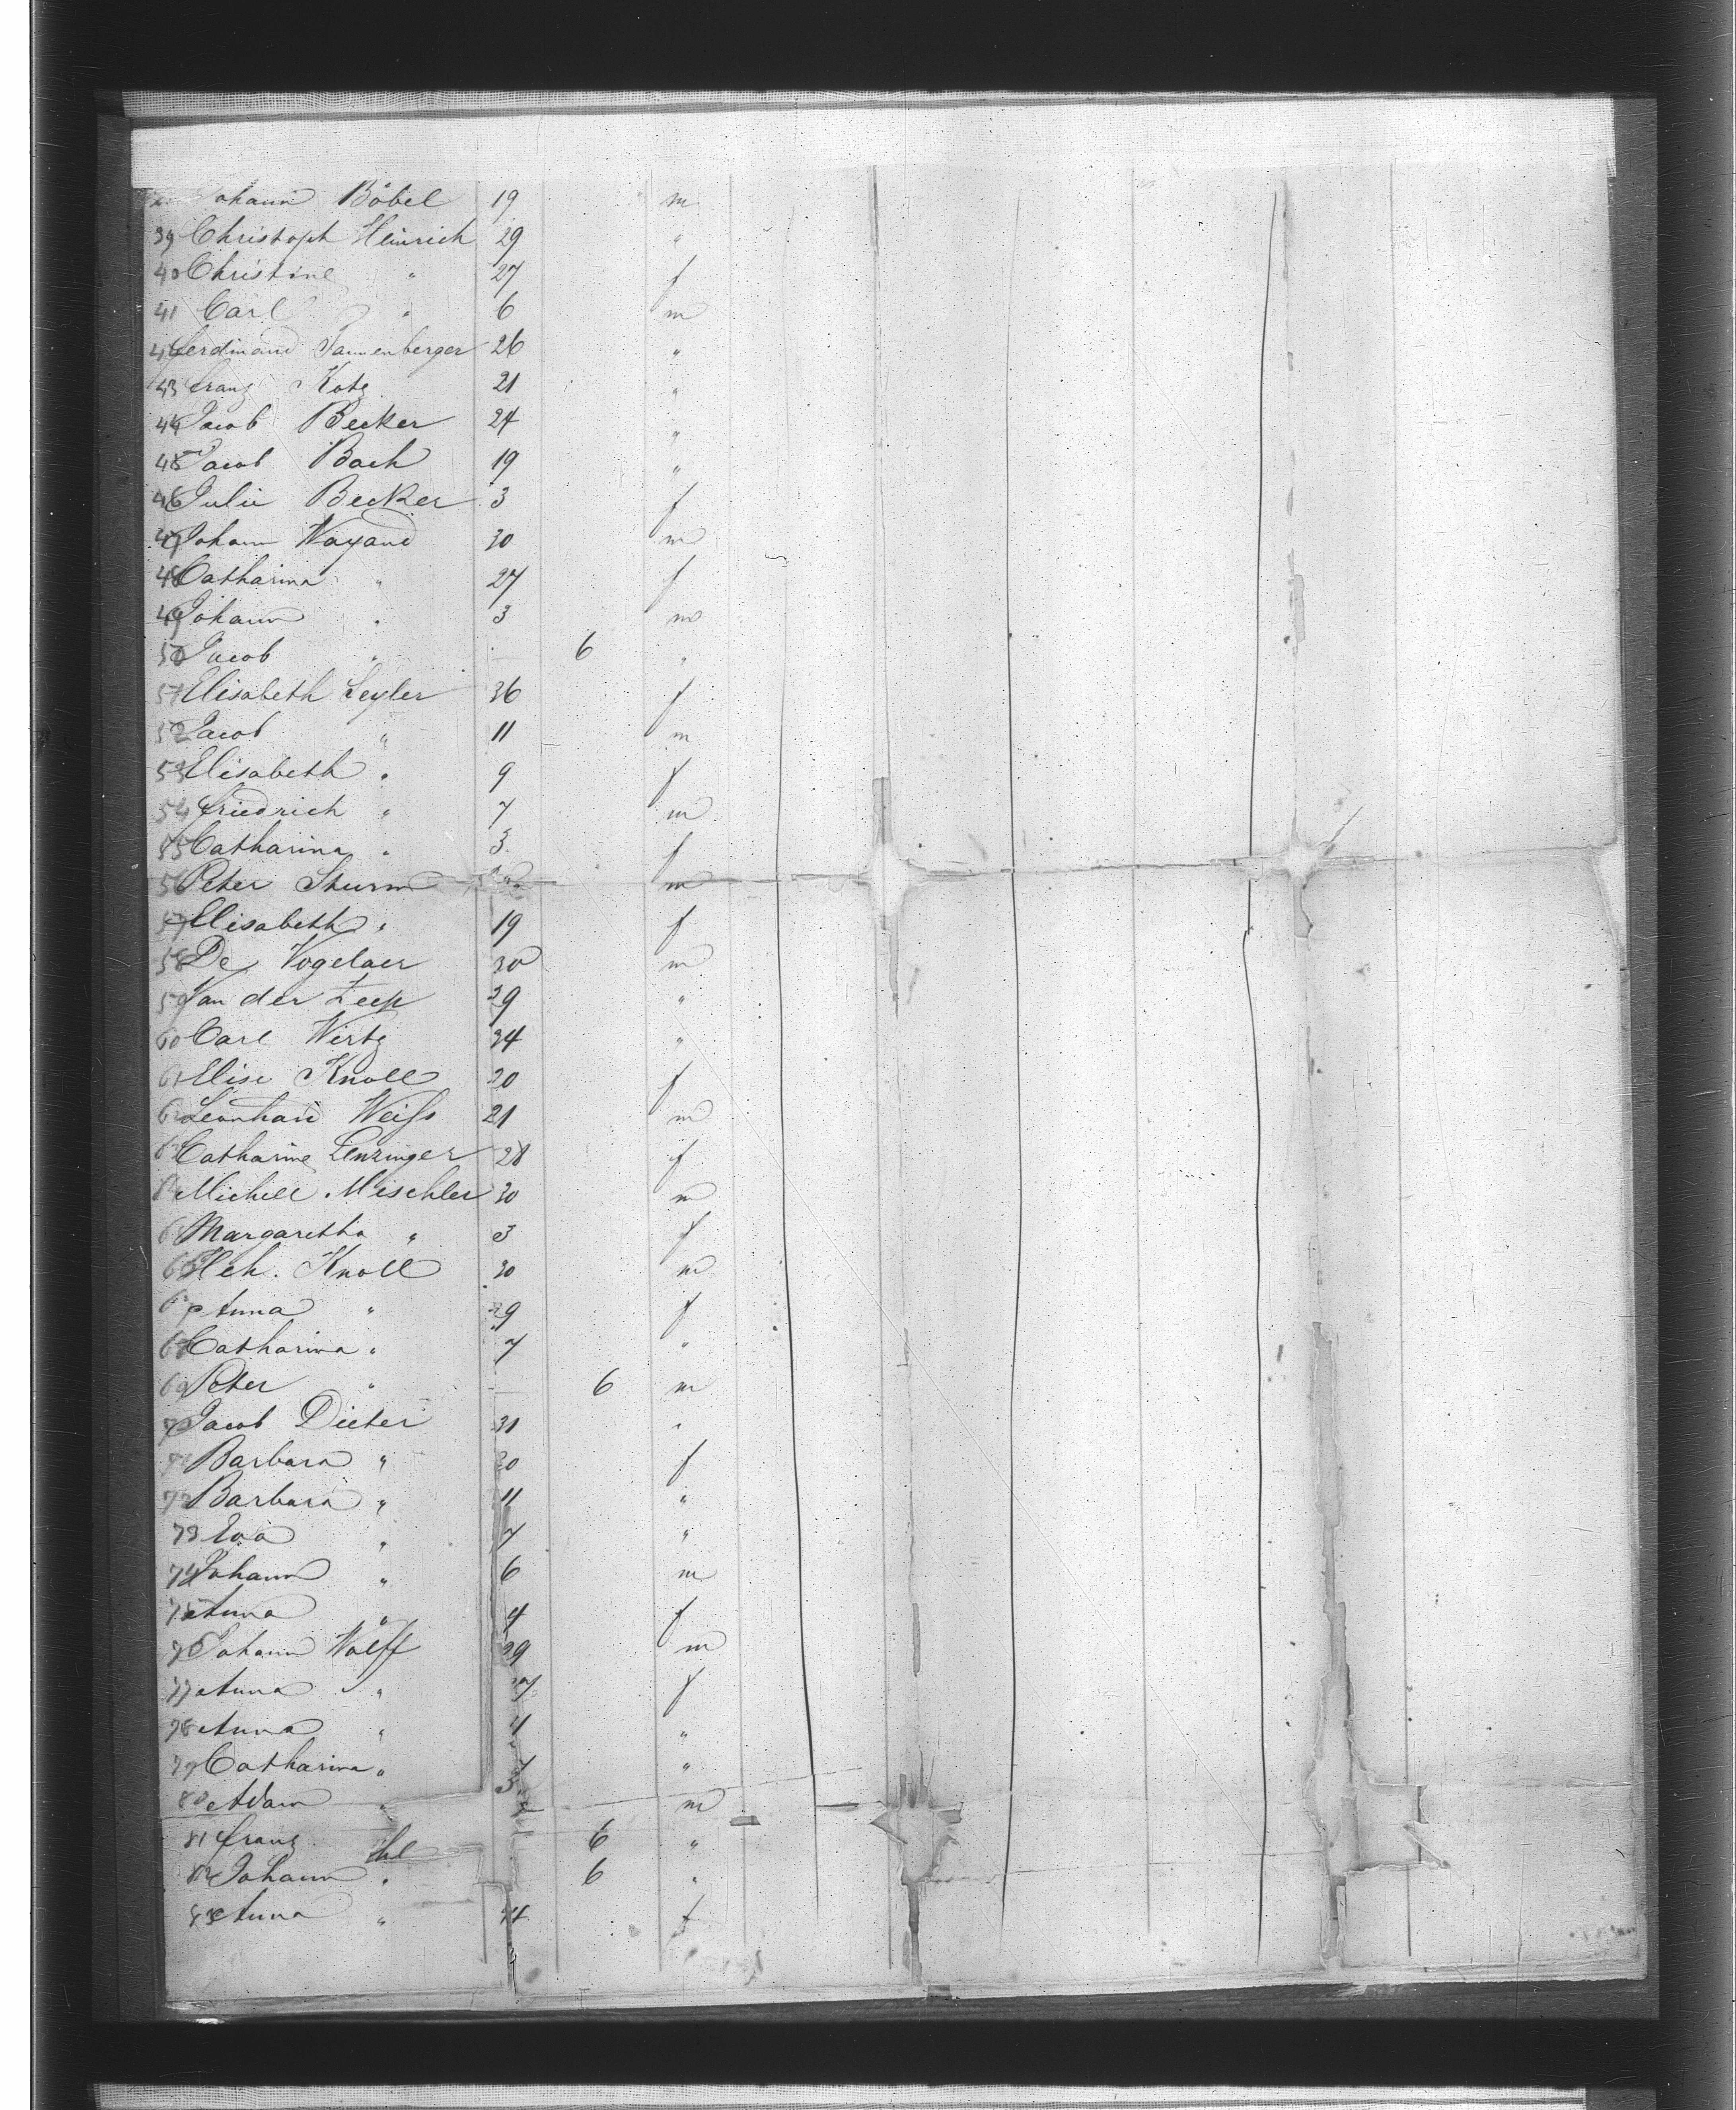 Johann Böbel 19 m
39 Christoph Heinrich 29 "
40 Christine " 27 f
41 Carl " 6 m
42 Ferdinand Tannenberger 26 "
43 Franz Kotz 21 "
44 Jacob Becker 24 "
45 Jacob Bach 19 "
46 Julie Becker 3 f
47 Johann Wayand 30 m
48 Catharina " 27 f
49 Johann " 3 m
50 Jacob " 6 "
51 Elisabeth Seyler 36 f
52 Jacob " 11 m
53 Elisabeth " 9 f
54 Friedrich " 7 m
55 Catharina " 3 f
56 Peter Sturm m
57 Elisabeth " 19 f
58 De Vogelaer 30 m
59 Van der Zeep 29 "
60 Carl Wirtz 34 "
61 Elise Knoll 20 f
62 Leonhard Weiſs 21 m
63 Catharine Lenzinger 28 f
64 Michell Mischler 30 m
65 Margaretha " 3 f
66 Hch. Knoll 30 m
67 Anna " 29 f
68 Catharina " 7 "
69 Peter " 6 m
70 Jacob Dieter 31 "
71 Barbara " 30 f
72 Barbara " 11 "
73 Eva " 7 "
74 Johann " 6 m
75 Anna " 4 f
76 Johann Wolff 39 m
77 Anna " 37 f
78 Anna " 11 "
79 Catharina " 7 "
80 Adam " 3 m
81 Franz 6 "
82 Johann " 6 "
83 Anna " f